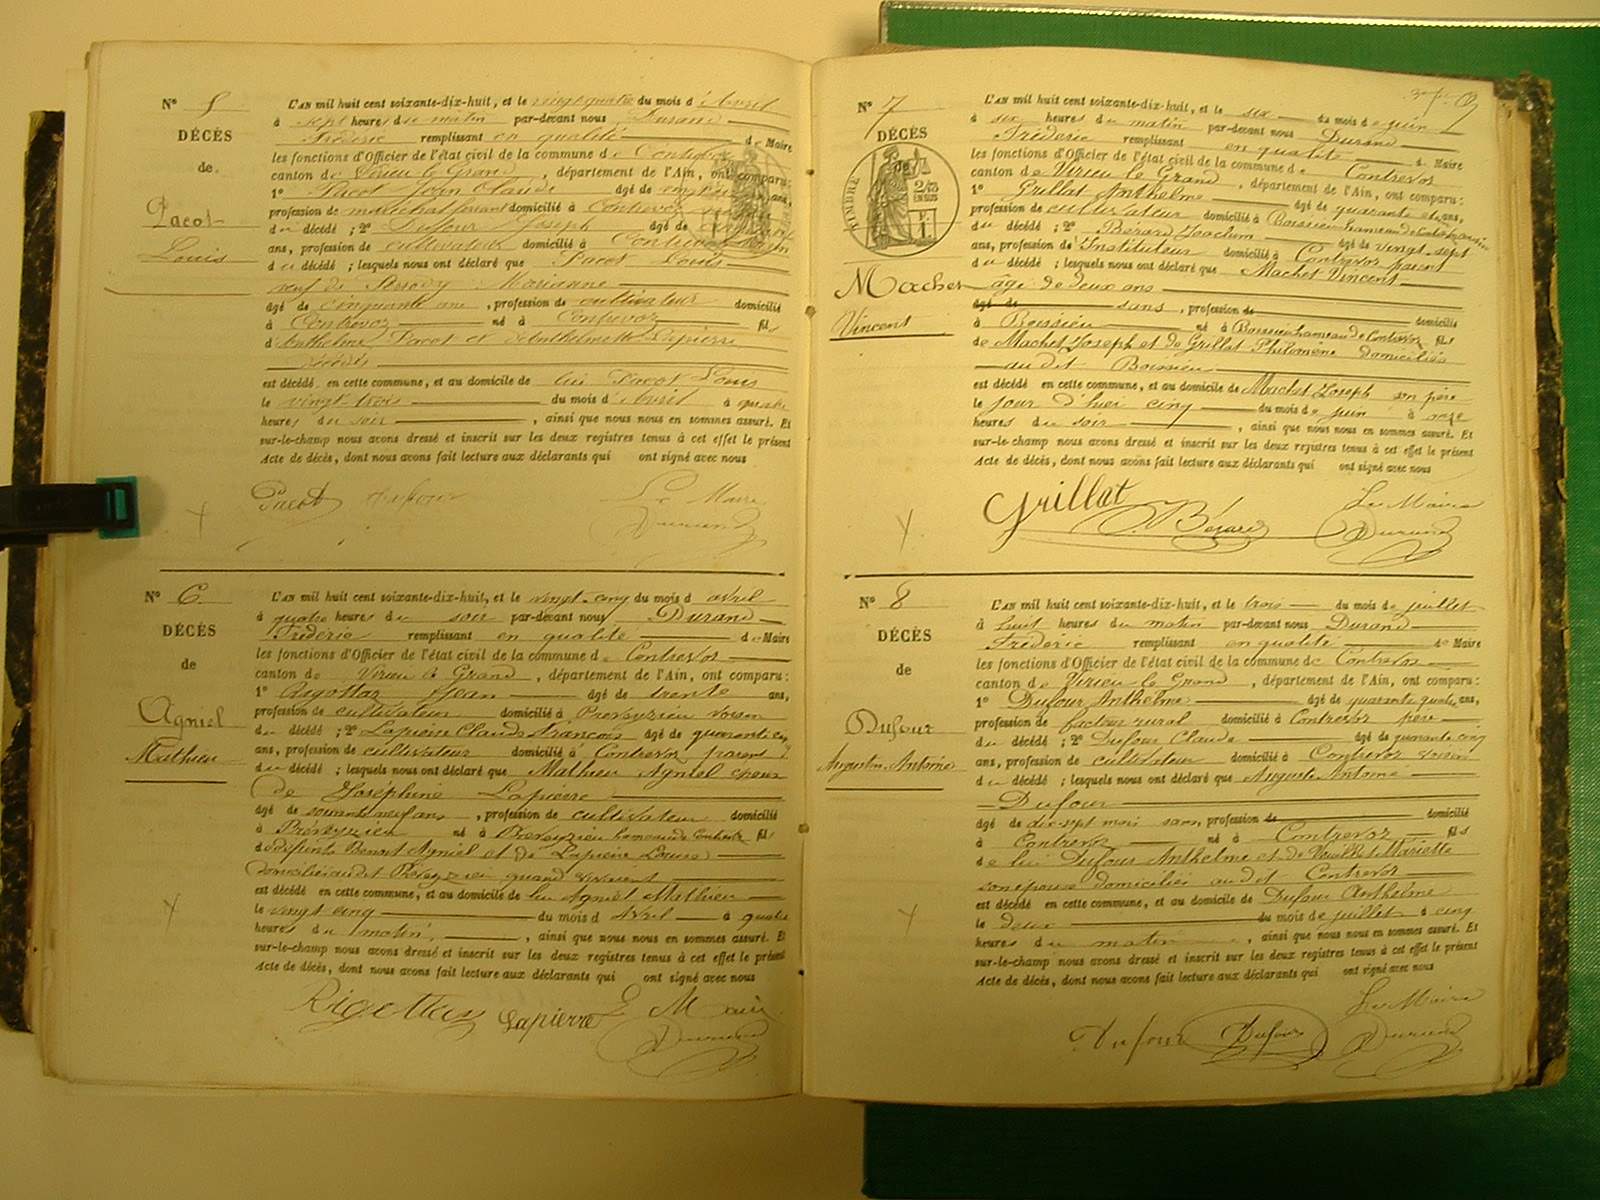 N° 5
DÉCÈS
de
Pacot
Louis
L'AN mil huit cent soixante-dix-huit, et le vingt quatre du mois d'Avril
à sept heures du matin par-devant nous Durand
Frédéric remplissant en qualité de Maire
les fonctions d'Officier de l'état civil de la commune de Contrevoz
canton de Virieu le Grand, département de l'Ain, ont comparu:
1° Pacot Jean Claude âgé de ans,
profession de maréchal ferrant domicilié à Contrevoz
du décédé; 2° Dufour Joseph âgé de
ans, profession de cultivateur domicilié à Contrevoz
du décédé; lesquels nous ont déclaré que Pacot Louis
veuf de Marianne
âgé de cinquante ans, profession de cultivateur domicilié
à Contrevoz né à Contrevoz fils
d'Anthelme Pacot et d'Anthelmette Lapierre
décédés
est décédé en cette commune, et au domicile de lui Pacot Louis
le vingt trois du mois d'Avril à quatre
heures du soir, ainsi que nous nous en sommes assuré. Et
sur-le-champ nous avons dressé et inscrit sur les deux registres tenus à cet effet le présent
Acte de décès, dont nous avons fait lecture aux déclarants qui ont signé avec nous
Pacot Dufour Le Maire
Durand
N° 6
DÉCÈS
de
Agniel
Mathieu
L'AN mil huit cent soixante-dix-huit, et le vingt-cinq du mois d avril
à quatre heures du soir par-devant nous Durand
Frédéric remplissant en qualité de Maire
les fonctions d'Officier de l'état civil de la commune de Contrevoz
canton de Virieu le Grand, département de l'Ain, ont comparu:
1° Rigottaz Jean âgé de trente ans,
profession de cultivateur domicilié à Preveyzieu voisin
du décédé; 2° Lapierre Claude François âgé de quarante cinq
ans, profession de cultivateur domicilié à Contrevoz parent
du décédé; lesquels nous ont déclaré que Mathieu Agniel époux
de Joséphine Lapierre
âgé de soixante neuf ans, profession de cultivateur domicilié
à Preveyzieu né à Preveyzieu hameau de Contrevoz fils
de défunts Benoit Agniel et de Lapierre Louise
domiciliés audit Preveyzieu quand vivaient
est décédé en cette commune, et au domicile de lui Agniel Mathieu
le vingt cinq du mois d Avril à quatre
heures du matin, ainsi que nous nous en sommes assuré. Et
sur-le-champ nous avons dressé et inscrit sur les deux registres tenus à cet effet le présent
Acte de décès, dont nous avons fait lecture aux déclarants qui ont signé avec nous
Rigottaz Lapierre Le Maire
Durand
N° 7
DÉCÈS
de
TIMBRE
2/10
EN SUS
Machet
Vincent
L'AN mil huit cent soixante-dix-huit, et le six du mois de juin
à six heures du matin par-devant nous Durand
Frédéric remplissant en qualité de Maire
les fonctions d'Officier de l'état civil de la commune de Contrevoz
canton de Virieu le Grand, département de l'Ain, ont comparu:
1° Grillat Anthelme âgé de quarante ans,
profession de cultivateur domicilié à Boissieu hameau de Contrevoz
du décédé; 2° Bérard Joachim âgé de vingt sept
ans, profession d'Instituteur domicilié à Contrevoz parent
du décédé; lesquels nous ont déclaré que Machet Vincent
âgé de deux ans
âgé de sans, profession de domicilié
à Boissieu né à Boissieu hameau de Contrevoz fils
de Machet Joseph et de Grillat Philomène domiciliés
au dit Boissieu
est décédé en cette commune, et au domicile de Machet Joseph son père
le jour d'hier cinq du mois de juin à onze
heures du soir, ainsi que nous nous en sommes assuré. Et
sur-le-champ nous avons dressé et inscrit sur les deux registres tenus à cet effet le présent
Acte de décès, dont nous avons fait lecture aux déclarants qui ont signé avec nous
Grillat J. Bérard Le Maire
Durand
N° 8
DÉCÈS
de
Dufour
Augustin Antoine
L'AN mil huit cent soixante-dix-huit, et le trois du mois de juillet
à huit heures du matin par-devant nous Durand
Frédéric remplissant en qualité de Maire
les fonctions d'Officier de l'état civil de la commune de Contrevoz
canton de Virieu le Grand, département de l'Ain, ont comparu:
1° Dufour Anthelme âgé de quarante quatre ans,
profession de facteur rural domicilié à Contrevoz père
du décédé; 2° Dufour Claude âgé de quarante cinq
ans, profession de cultivateur domicilié à Contrevoz voisin
du décédé; lesquels nous ont déclaré que Auguste Antoine
Dufour
âgé de dix sept mois sans, profession de domicilié
à Contrevoz né à Contrevoz fils
de lui Dufour Anthelme et de Mariette
son épouse domiciliés au dit Contrevoz
est décédé en cette commune, et au domicile de Dufour Anthelme
le deux du mois de juillet à cinq
heures du matin, ainsi que nous nous en sommes assuré. Et
sur-le-champ nous avons dressé et inscrit sur les deux registres tenus à cet effet le présent
Acte de décès, dont nous avons fait lecture aux déclarants qui ont signé avec nous
Dufour Dufour Le Maire
Durand